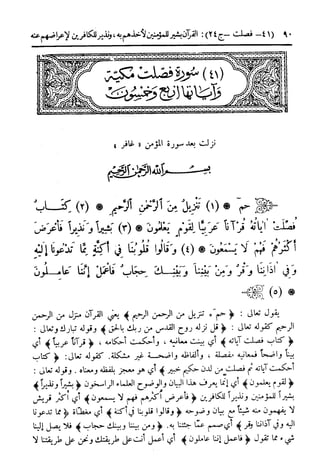 ٩٠ (٤١ – فصلت – ج ٢٤): القرآن بشير للمؤمنين لأخذهم به، ونذير للكافرين لإعراضهم عنه
(٤١) سُورَة فُصِّلَت مَكيّة
وَآيَاتهَا أربَع وَخمسُون
نزلت بعد سورة المؤمن « غافر »
بِسْمِ اللهِ الرَّحْمٰنِ الرَّحِيمِ
حمۤ * (١) تَنْزِيلٌ مِنَ ٱلرَّحْمٰنِ ٱلرَّحِيمِ * (٢) كِتَابٌ
فُصِّلَتْ ءَايَاتُهُ قُرْءَاناً عَرَبِيّاً لِقَوْمٍ يَعْلَمُونَ * (٣) بَشِيراً وَنَذِيراً فَأَعْرَضَ
أَكْثَرُهُمْ فَهُمْ لَا يَسْمَعُونَ * (٤) وَقَالُوا قُلُوبُنَا فِي أَكِنَّةٍ مِّمَّا تَدْعُونَا إِلَيْهِ
وَفِي ءَاذَانِنَا وَقْرٌ وَمِنْ بَيْنِنَا وَبَيْنِكَ حِجَابٌ فَاعْمَلْ إِنَّنَا عَامِلُونَ
* (٥)
يقول تعالى : ﴿ حمۤ * تنزيل من الرحمن الرحيم ﴾ يعني القرآن منزل من الرحمن
الرحيم كقوله تعالى : ﴿ قل نزله روح القدس من ربك بالحق ﴾ وقوله تبارك وتعالى :
﴿ كتاب فصلت آياته ﴾ أي بينت معانيه ، وأحكمت أحكامه ، ﴿ قرآناً عربياً ﴾ أي
بيناً واضحاً فمعانيه مفصلة ، وألفاظه واضحة غير مشكلة. كقوله تعالى: ﴿ كتاب
أحكمت آياته ثم فصلت من لدن حكيم خبير ﴾ أي هو معجز بلفظه ومعناه . وقوله تعالى:
﴿ لقوم يعلمون ﴾ أي إنما يعرف هذا البيان والوضوح العلماء الراسخون ﴿ بشيراً ونذيراً ﴾
أي بشيراً للمؤمنين ونذيراً للكافرين ﴿ فأعرض أكثرهم فهم لا يسمعون ﴾ أي أكثر قريش
لا يفهمون منه شيئاً مع بيان وضوحه ﴿ وقالوا قلوبنا في أكنة ﴾ أي مغطاة ﴿ مما تدعونا
إليه وفي آذاننا وقر ﴾ أي صمم عما جئتنا به. ﴿ ومن بيننا وبينك حجاب ﴾ فلا يصل إلينا
شيء مما تقول ﴿ فاعمل إننا عاملون ﴾ أي أعمل أنت على طريقتك ونحن على طريقتنا لا